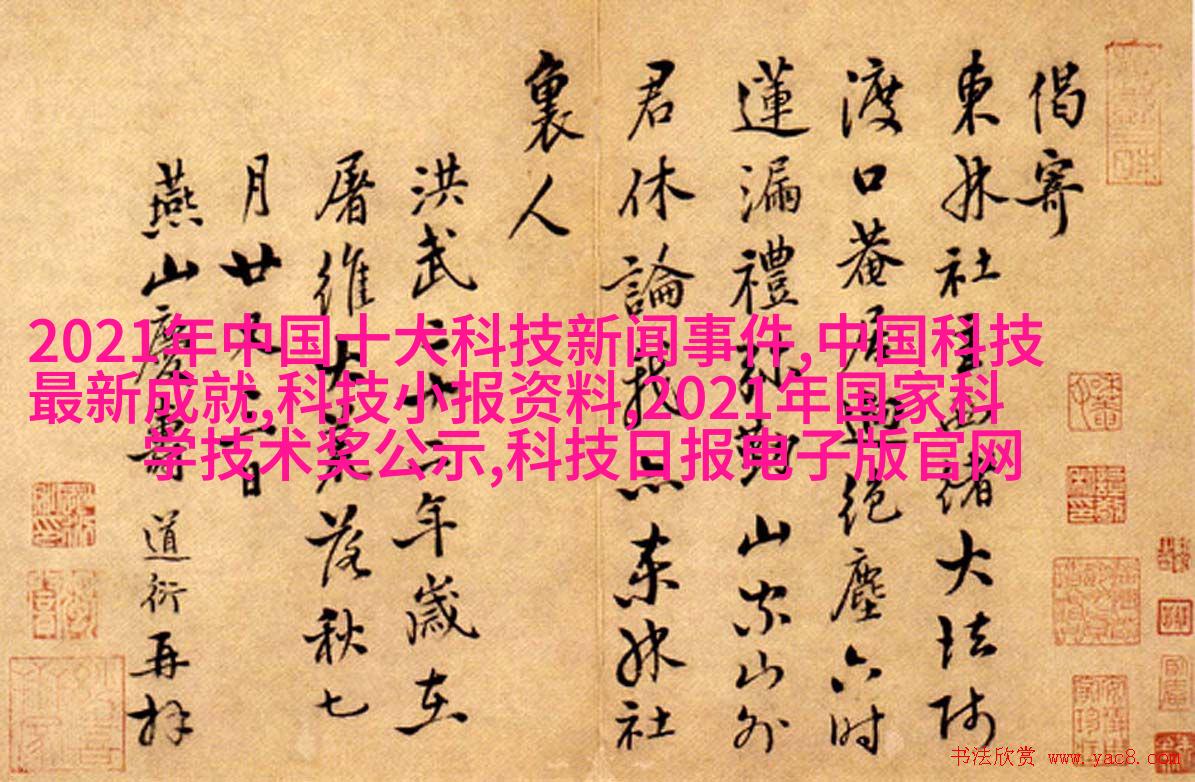 偈寄
東林社主緒大法師
渡口菴居絕塵六時
蓮漏禮弥勤山宗山外
君休論東林社
裏人
洪武二十二年歲在
屠維大荒落秋七
月廿日
燕山慶壽道衍再拜
2021年中国十大科技新闻事件,中国科技
最新成就,科技小报资料,2021年国家科
学技术奖公示,科技日报电子版官网
书法欣赏 www.yac8.com